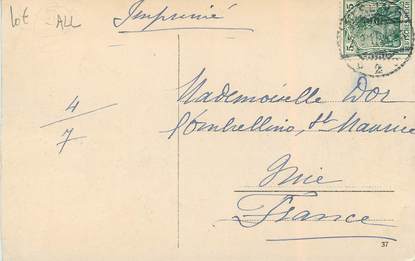 lot ALL
Imprimé
5 5
2
4/7
Mademoiselle Dor
Ombrellino, St Maurice
Nice
France
37